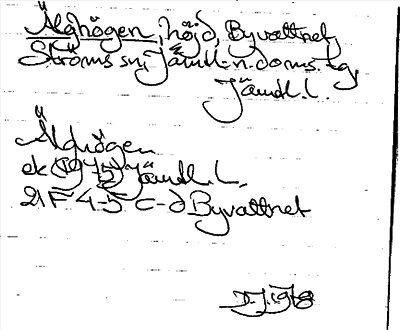 Älghögen, höjd, Byvattnet,
Ströms sn, Jämtl. n. doms. tg,
Jämtl. l.
Älghögen
ek (1975) Jämtl. L.
21 F 4-5 c-d Byvattnet
1978